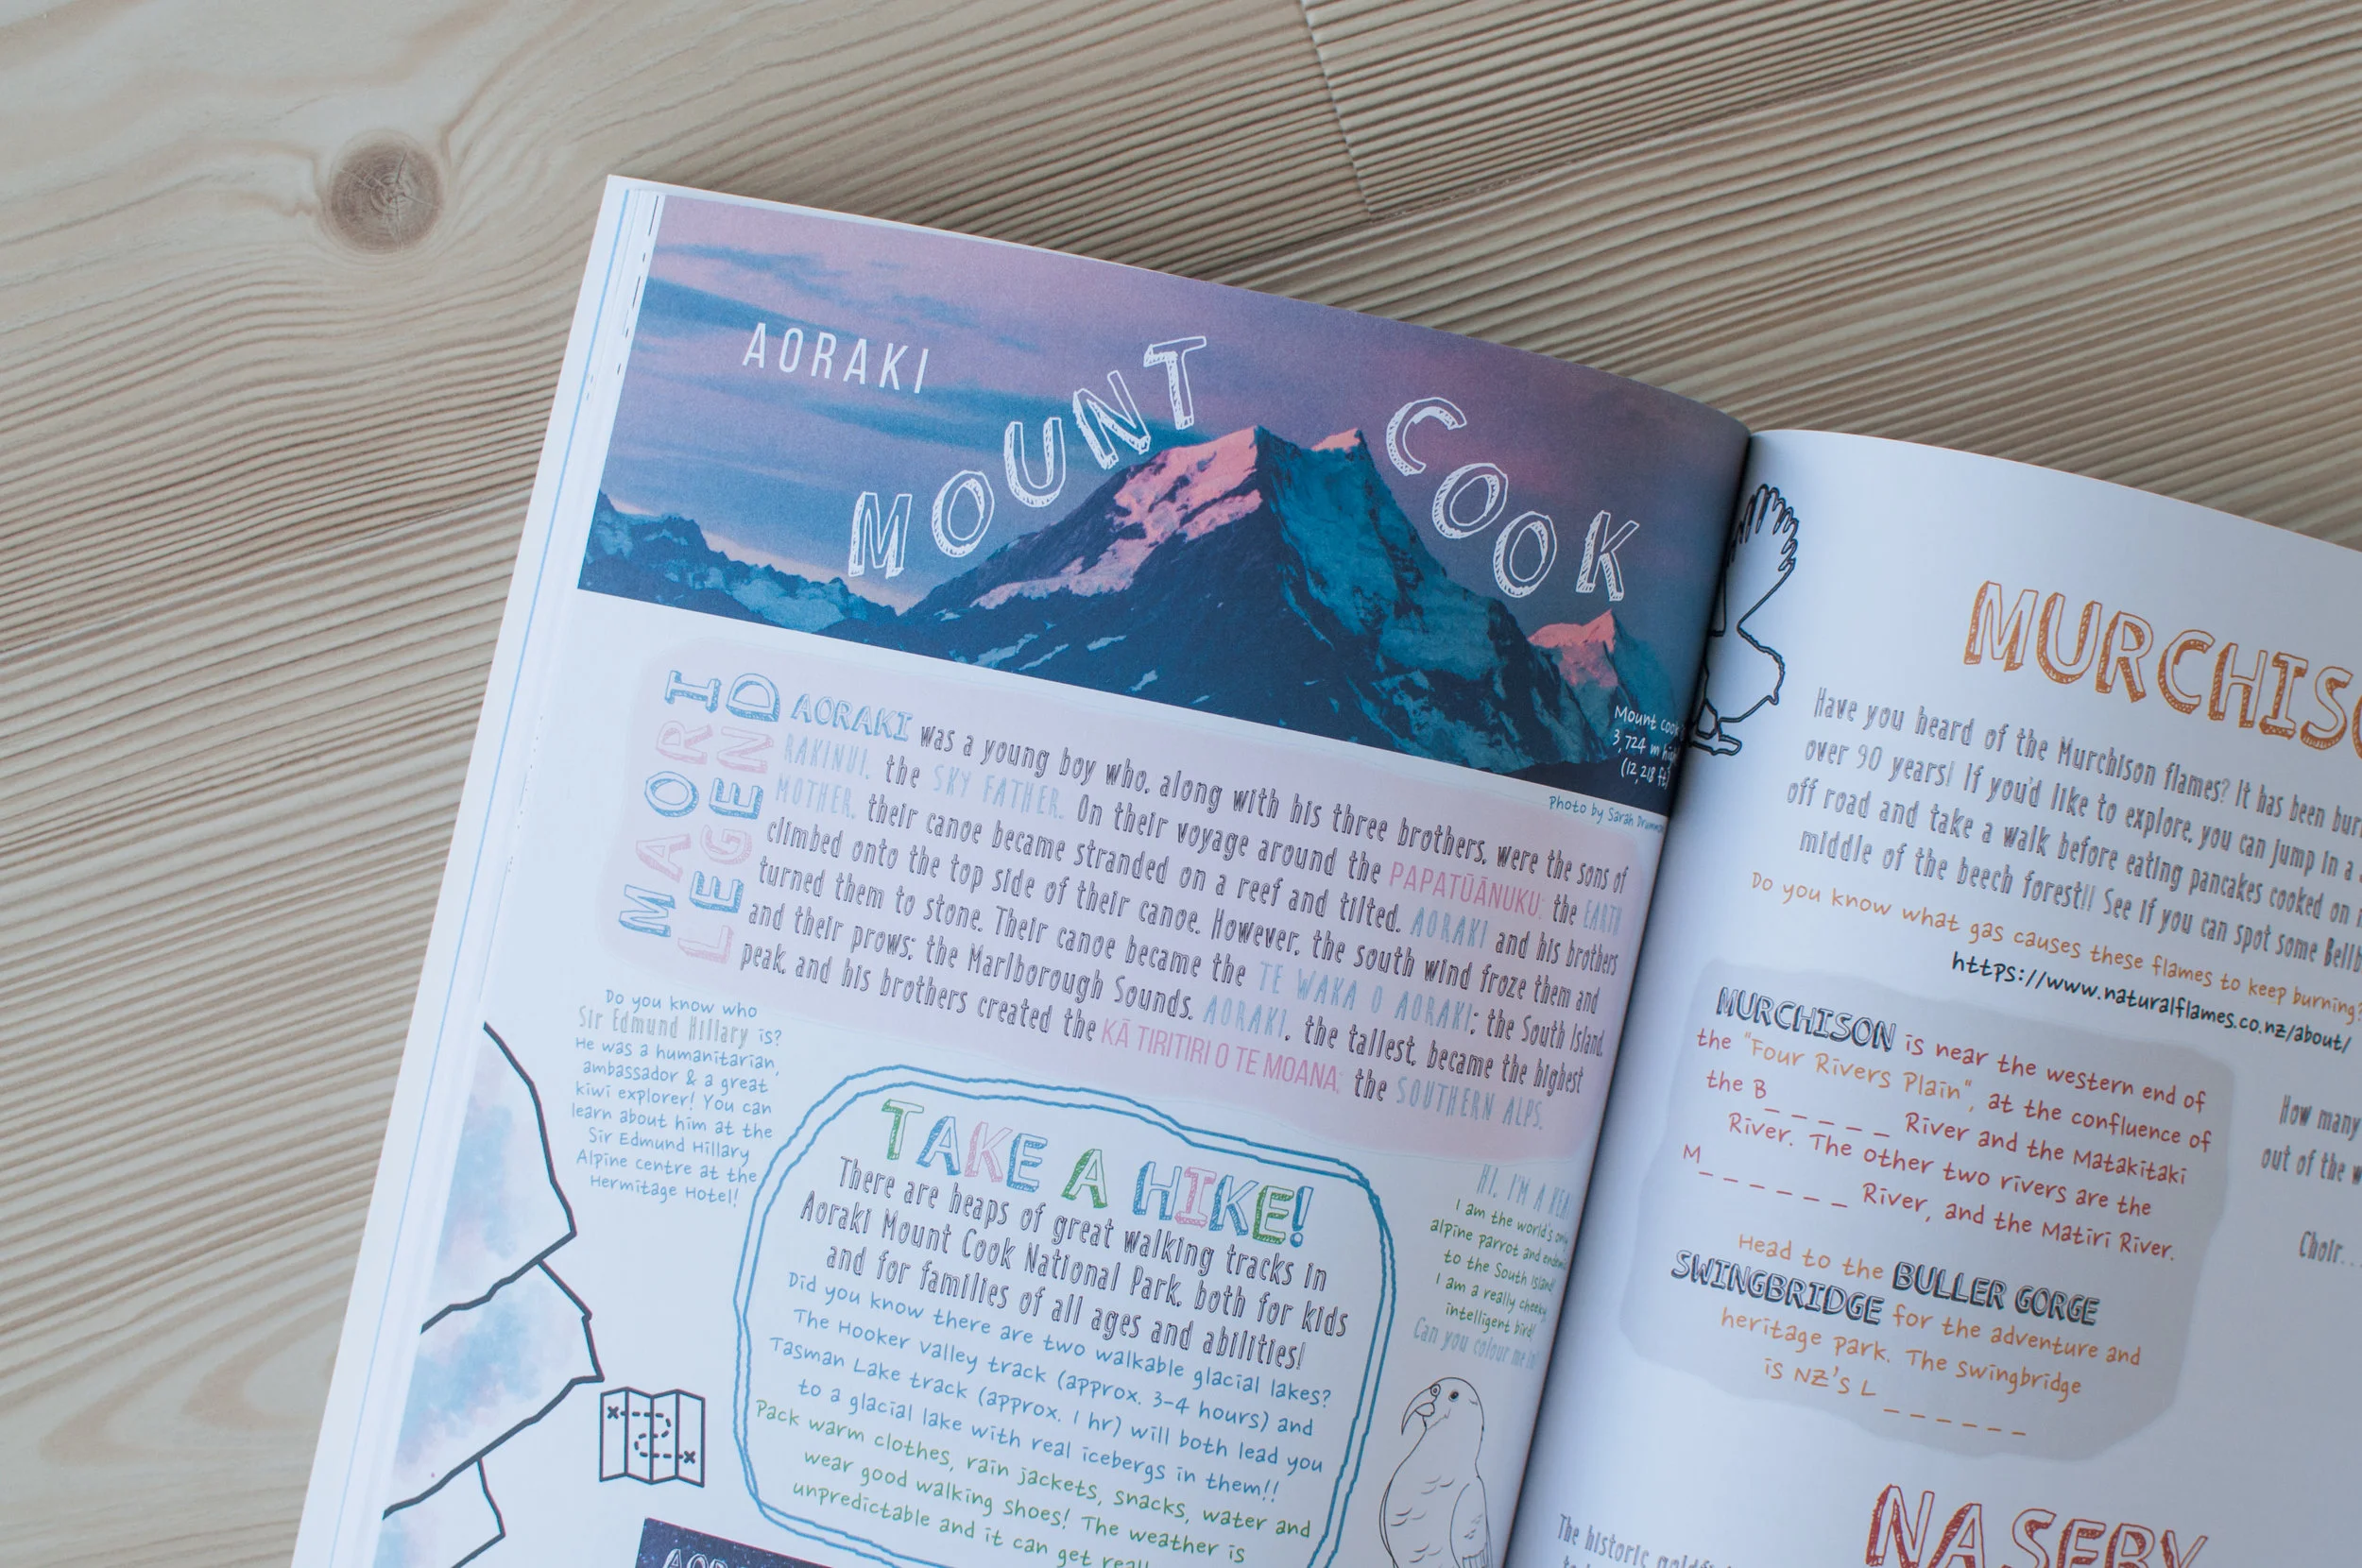 AORAKI
MOUNT COOK
Mount cook
3,724 m
(12,218 ft)
Photo by Sarah
MAORI
LEGEND
AORAKI was a young boy who, along with his three brothers, were the sons of
RAKINUI, the SKY FATHER. On their voyage around the PAPATŪĀNUKU; the EARTH
MOTHER, their canoe became stranded on a reef and tilted. AORAKI and his brothers
climbed onto the top side of their canoe. However, the south wind froze them and
turned them to stone. Their canoe became the TE WAKA O AORAKI; the South Island,
and their prows; the Marlborough Sounds. AORAKI, the tallest, became the highest
peak, and his brothers created the KĀ TIRITIRI O TE MOANA; the SOUTHERN ALPS.
Do you know who
Sir Edmund Hillary is?
He was a humanitarian,
ambassador & a great
kiwi explorer! You can
learn about him at the
Sir Edmund Hillary
Alpine centre at the
Hermitage Hotel!
TAKE A HIKE!
There are heaps of great walking tracks in
Aoraki Mount Cook National Park, both for kids
and for families of all ages and abilities!
Did you know there are two walkable glacial lakes?
The Hooker Valley track (approx. 3-4 hours) and
Tasman Lake track (approx. 1 hr) will both lead you
to a glacial lake with real icebergs in them!!
Pack warm clothes, rain jackets, snacks, water and
wear good walking shoes! The weather is
unpredictable and it can get
HI, I'M A KEA
I am the world's
alpine parrot and
to the South Island!
I am a really cheeky,
intelligent bird!
Can you colour me in
MURCHIS
Have you heard of the Murchison flames? It has been
over 90 years! If you'd like to explore, you can jump in a
off road and take a walk before eating pancakes cooked on
middle of the beech forest!! See if you can spot some
Do you know what gas causes these flames to keep burning?
https://www.naturalflames.co.nz/about/
MURCHISON is near the western end of
the "Four Rivers Plain", at the confluence of
the B_ _ _ _ _ River and the Matakitaki
River. The other two rivers are the
M_ _ _ _ _ _ River, and the Matiri River.
Head to the BULLER GORGE
SWINGBRIDGE for the adventure and
heritage park. The swingbridge
is NZ's L _ _ _ _ _ _
How many
out of the
Choir...
NASEBY
The historic